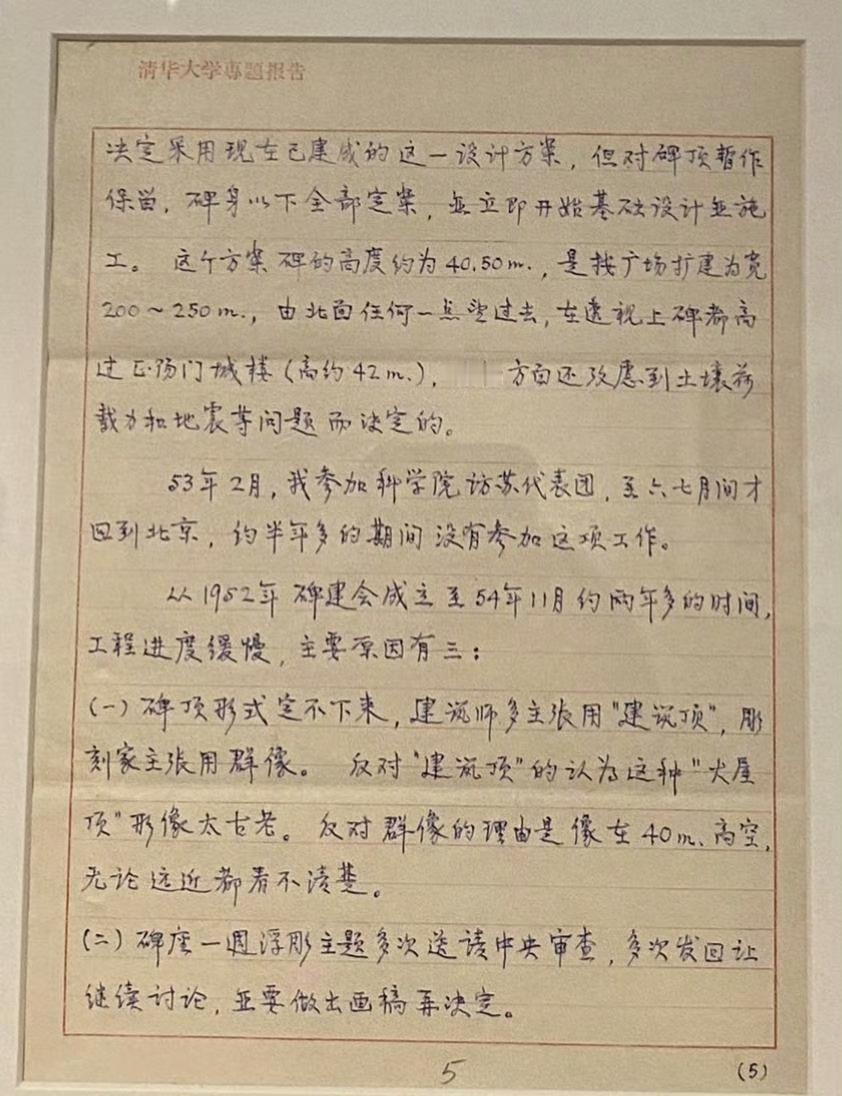 清华大学专题报告
决定采用现在已建成的这一设计方案，但对碑顶暂作
保留，碑身以下全部定案，並立即开始基础设计並施
工。 这个方案碑的高度约为40.50m.，是按广场扩建为宽
200～250m.，由北面任何一点望过去，在透视上碑都高
过正阳门城楼（高约42m.）， 方面还考虑到土壤荷
载力和地震等问题而决定的。
53年2月，我参加科学院访苏代表团，至六七月间才
回到北京，约半年多的期间没有参加这项工作。
从1952年碑建会成立至54年11月约两年多的时间，
工程进度缓慢，主要原因有三：
（一）碑顶形式定不下来，建筑师多主张用"建筑顶"，彫
刻家主张用群像。 反对"建筑顶"的认为这种"大屋
顶"形像太古老。 反对群像的理由是像在40m.高空，
无论远近都看不清楚。
（二）碑座一週浮彫主题多次送请中央审查，多次发回让
继续讨论，並要做出画稿再决定。
5
(5)